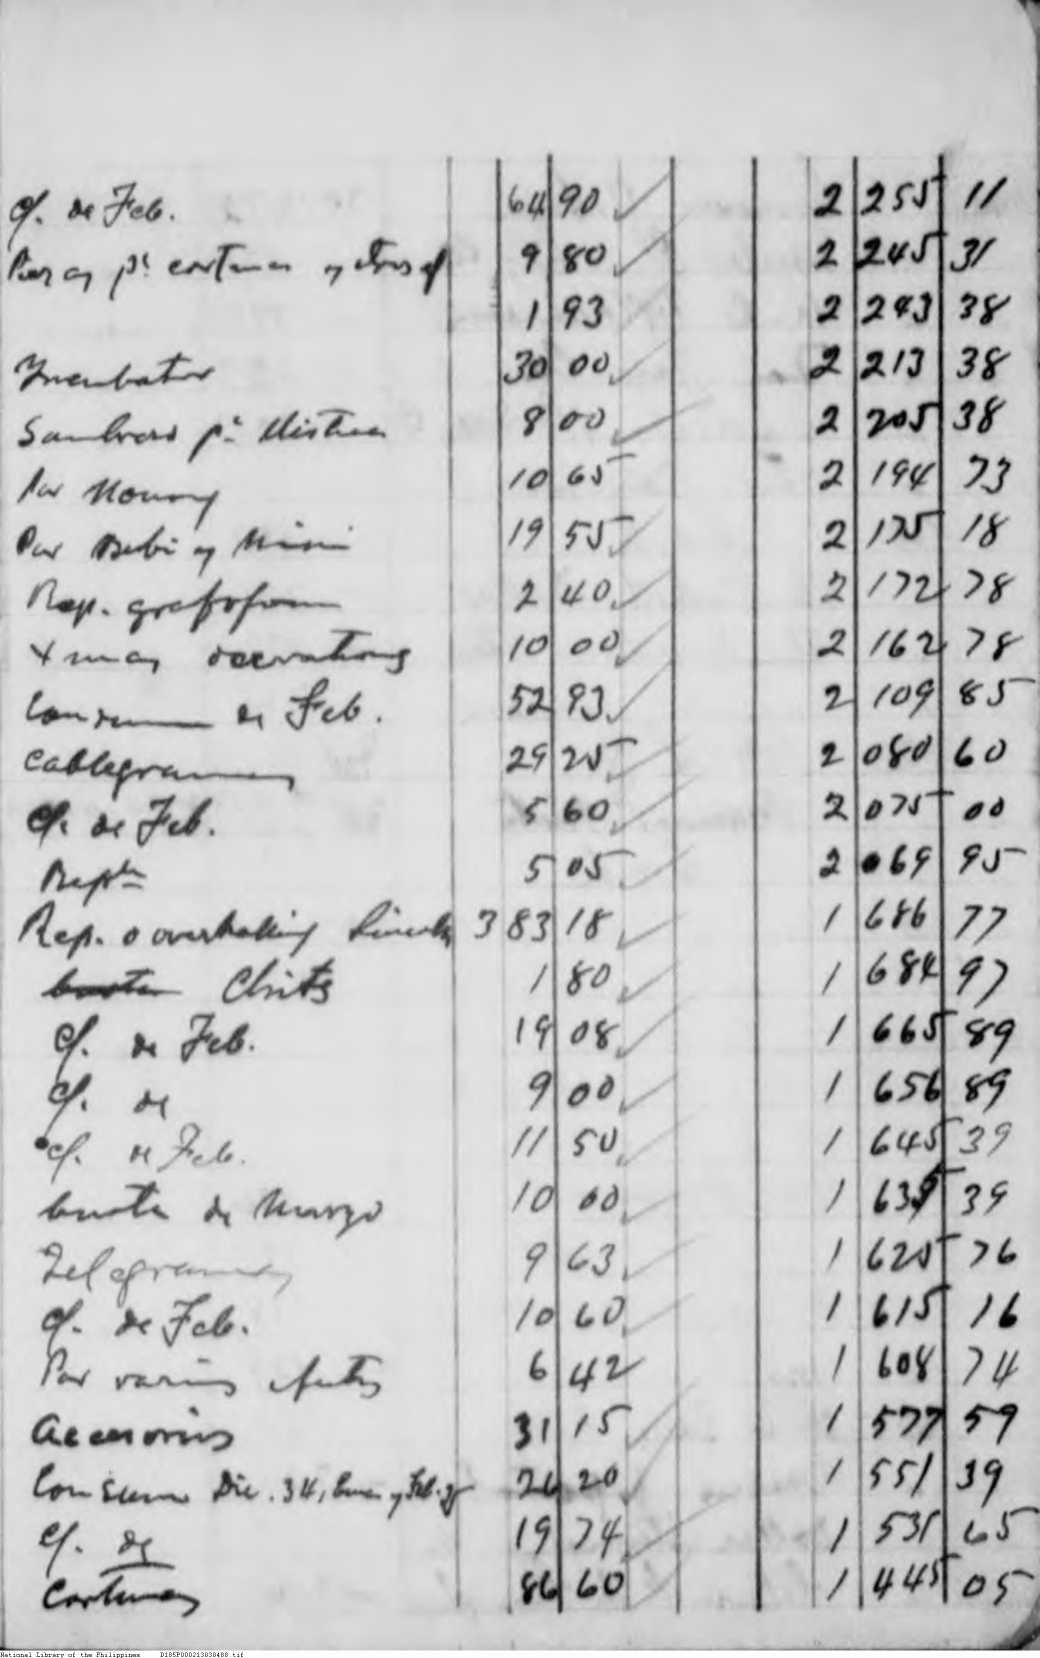 cf. de Feb. 64 90 2 255 11
p.ª cortinas y 9 80 2 245 31
1 93 2 243 38
Incubator 30 00 2 213 38
p.ª 8 00 2 205 38
Por Nonong 10 65 2 194 73
Por Bebi y Mini 19 55 2 175 18
Rep. grafofon 2 40 2 172 78
Xmas decorations 10 00 2 162 78
Consumo de Feb. 52 93 2 109 85
Cablegramas 29 25 2 080 60
cf. de Feb. 5 60 2 075 00
5 05 2 069 95
Rep. o overhauling Lincoln 3 83 18 1 686 77
Chits 1 80 1 684 97
cf. de Feb. 19 08 1 665 89
cf. de 9 00 1 656 89
cf. de Feb. 11 50 1 645 39
cuota de Marzo 10 00 1 635 39
Telegramas 9 63 1 625 76
cf. de Feb. 10 60 1 615 16
Por varios efectos 6 42 1 608 74
Accesorios 31 15 1 577 59
Consumo Dic. 34, Ene. y Feb. 26 20 1 551 39
cf. de 19 74 1 531 65
Cortinas 86 60 1 445 05
National Library of the Philippines D185P000213038488.tif